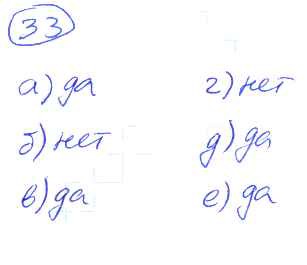 33
а) да
г) нет
б) нет
д) да
в) да
е) да